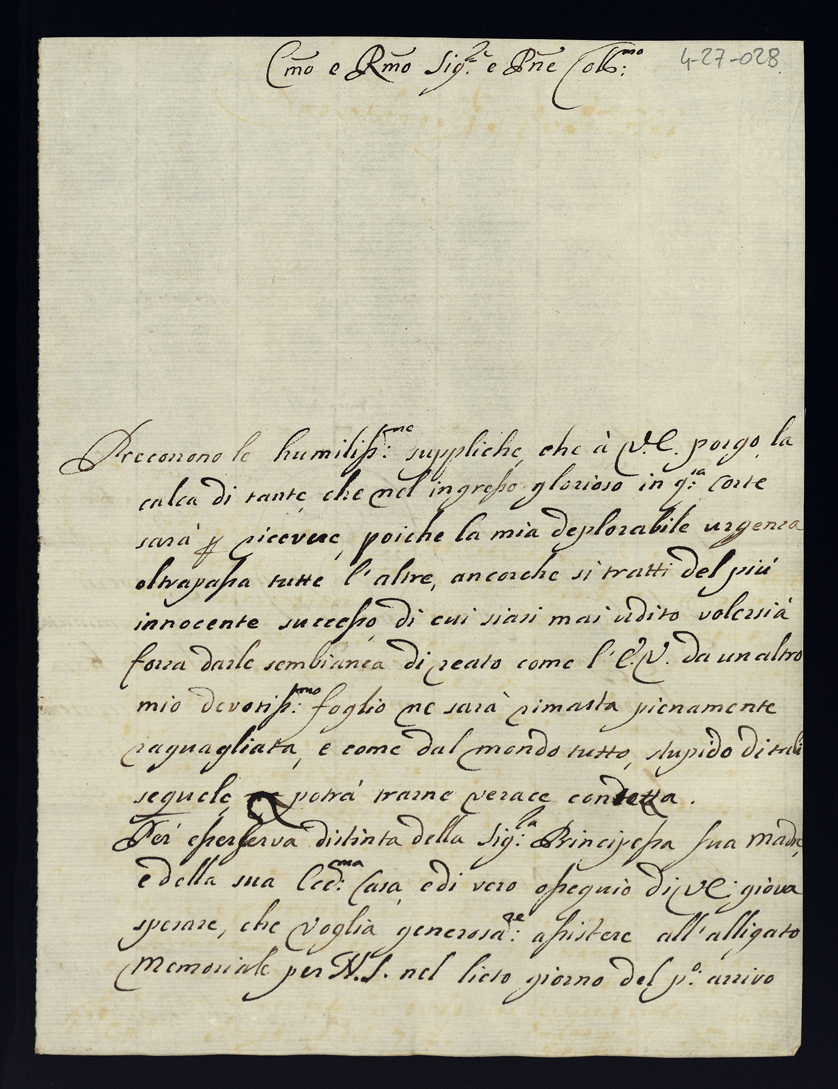 Emo e Rmo Sig.r e Pne Coll:mo
4-27-028
Precorrono le humiliss:me suppliche, che à V.E. porgo, la
calca di tante, che nel ingresso glorioso in q:ta Corte
sarà p ricevere, poiche la mia deplorabile urgenza
oltrapassa tutte l'altre, ancorche si tratti del più
innocente successo, di cui siasi mai udito volersi à
forza darle sembianza di reato come l'E.V. da un altro
mio devotiss:mo foglio ne sarà rimasta pienamente
raguagliata, e come dal mondo tutto, stupido di tali
sequele potrà trarne verace condotta.
Per esser serva distinta della Sig:ra Principessa sua Madre,
e della sua Ecc:ma Casa, e di vero ossequio di VE: giova
sperare, che voglia generosa:te assistere all'alligato
Memoriale per N.S. nel lieto giorno del p:o arrivo